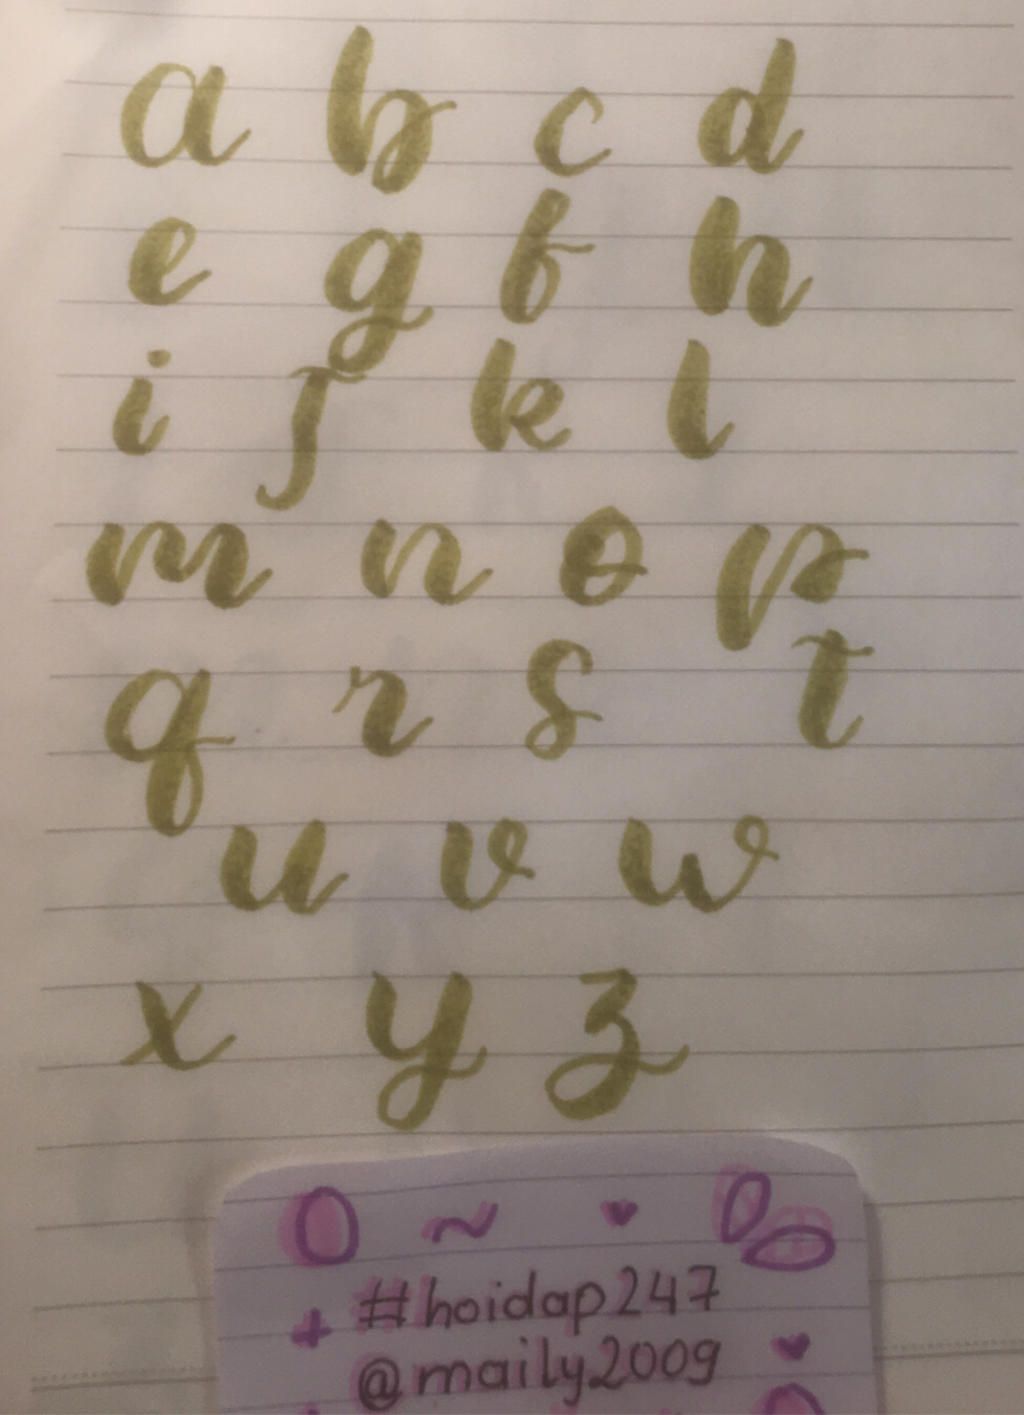 a b c d
e g f h
i j k l
m n o p
q r s t
u v w
x y z
#hoidap247
@maily2009